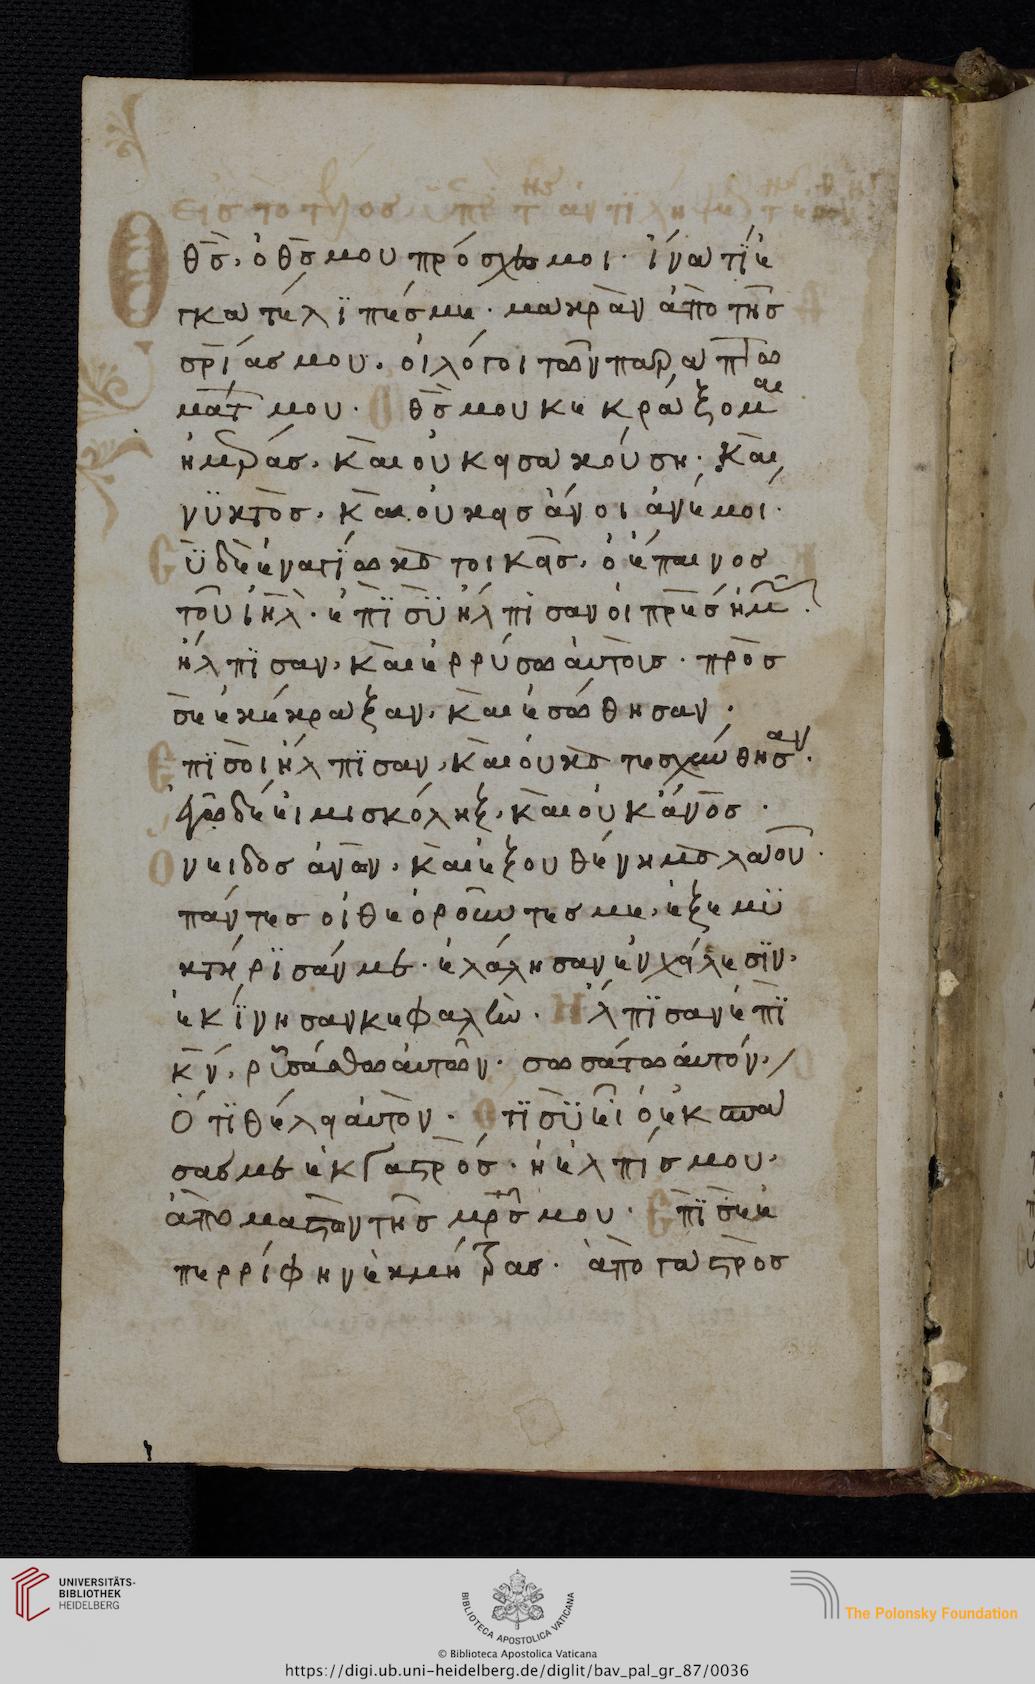 εἰς τὸ τέλος ὑπὲρ τ ἀντιλήψεως τ
Ὁ θς, ὁ θς μου πρόσχες μοι· ἵνα τί ἐ
γκατέλιπές με· μακρὰν ἀπὸ τῆς
σρίας μου, οἱ λόγοι τῶν παραπτω
μάτ μου· Ὁ θς μου κεκράξομαι
ἡμέρας, καὶ οὐκ εἰσακούσῃ· καὶ
νυκτὸς, καὶ οὐκ εἰς ἄνοιαν ἐμοί·
Σὺ δὲ ἐν ἁγίω κατοικεῖς, ὁ ἔπαινος
τοῦ ιηλ· ἐπὶ σὺ ἤλπισαν οἱ πρες ἡμ
ἤλπισαν, καὶ ἐρρύσω αὐτοὺς· πρὸς
σὲ ἐκέκραξαν, καὶ ἐσώθησαν·
Ἐπὶ σοὶ ἤλπισαν, καὶ οὐ κατεσχύνθησαν·
ἐγὼ δέ εἰμι σκόληξ, καὶ οὐκ ἄνος·
Ὄνειδος ἀνων, καὶ ἐξουθένημα λαοῦ·
πάντες οἱ θεοροῦντες με, ἐξεμυ
κτήρισάν με· ἐλάλησαν ἐν χείλεσιν,
ἐκίνησαν κεφαλὴν· Ἤλπισαν ἐπὶ
κν, ρυσάσθω αὐτὸν· σωσάτω αὐτόν,
Ὅτι θέλει αὐτὸν· Ὅτι σὺ εἶ ὁ ἐκσπά
σας με ἐκ γαστρός· ἡ ἐλπίς μου,
ἀπὸ μαστῶν τῆς μρς μου· Ἐπὶ σὲ ἐ
περρίφην ἐκ μήτρας· ἀπὸ γαστρὸς
UNIVERSITÄTS-
BIBLIOTHEK
HEIDELBERG
BIBLIOTECA APOSTOLICA VATICANA
The Polonsky Foundation
© Biblioteca Apostolica Vaticana
https://digi.ub.uni-heidelberg.de/diglit/bav_pal_gr_87/0036